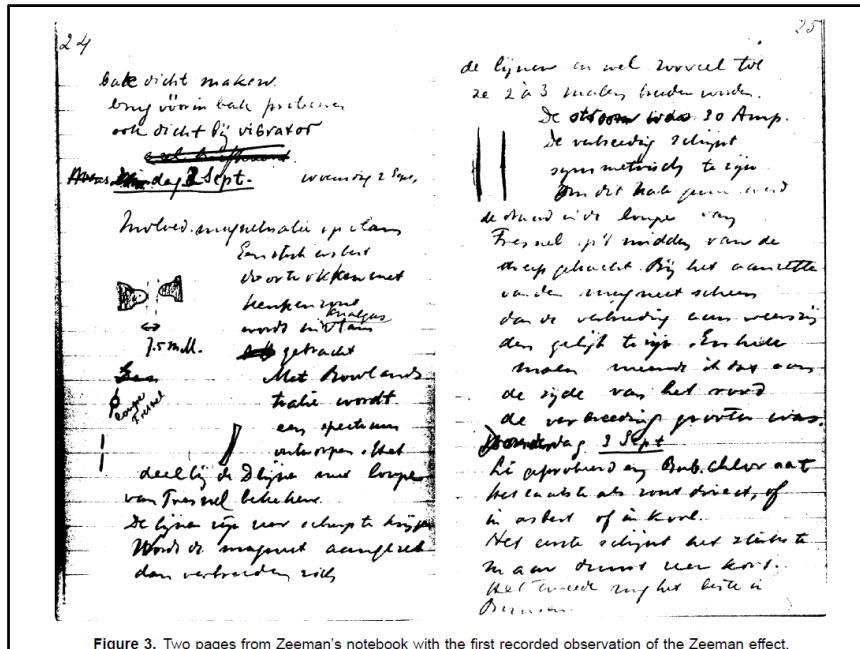 24
bak dicht maken.
brug vóór in bak proberen
ook dicht bij vibrator
dag 2 Sept. woensdag 2 Sept.
Invloed magnetisatie op vlam
Een stuk asbest
doortrokken met
keukenzout
wordt in vlam
Knalgas
7.5 m.M. gebracht
Met Rowlands
tralie wordt
loupe
Fresnel
een spectrum
ontworpen. Het
deel bij de D lijnen met loupe
van Fresnel bekeken.
De lijnen zijn zeer scherp te krijgen
Wordt de magneet aangezet
dan verbreeden zich
25
de lijnen en wel zooveel tot
ze 2 à 3 malen breeder worden.
De stroom was 30 Amp.
De verbreeding schijnt
symmetrisch te zijn
Om dit na te gaan werd
de draad in de loupe van
Fresnel op 't midden van de
streep gebracht. Bij het aanzetten
van den magneet scheen
dan de verbreeding aan weerszij
den gelijk te zijn. Enkele
malen meende ik dat aan
de zijde van het rood
de verbreeding grooter was.
Donderdag 3 Sept
Li geprobeerd en Rub. chlor aat
het laatste als zout direct, of
in asbest of in kool.
Het eerste schijnt het sterkste
maar duurt zeer kort.
Het tweede nog het beste in
Bunsen.
Figure 3. Two pages from Zeeman's notebook with the first recorded observation of the Zeeman effect.